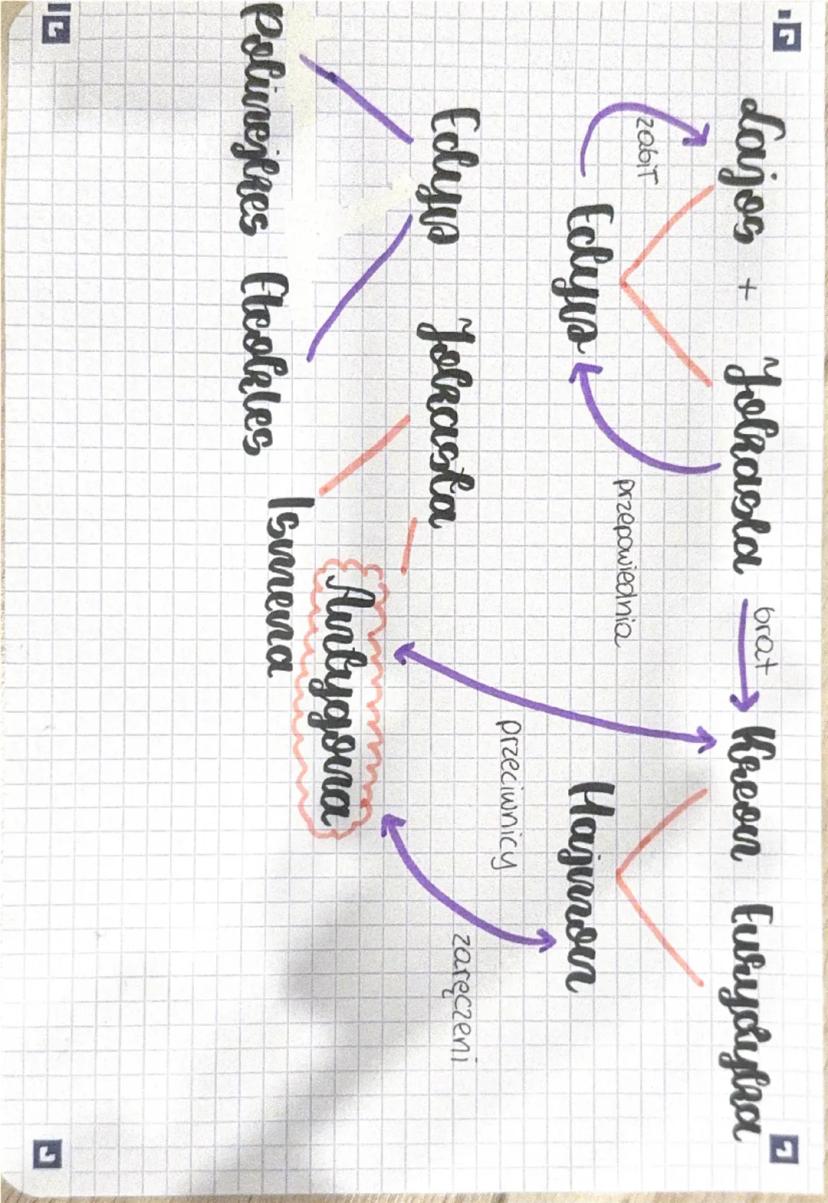 Lajos + Jokasta brat Kreon Eurydyka
zabił
Edyp przepowiednia Hajmon
przeciwnicy
Edyp Jokasta zaręczeni
Antygona
Polinejkes Eteokles Ismena